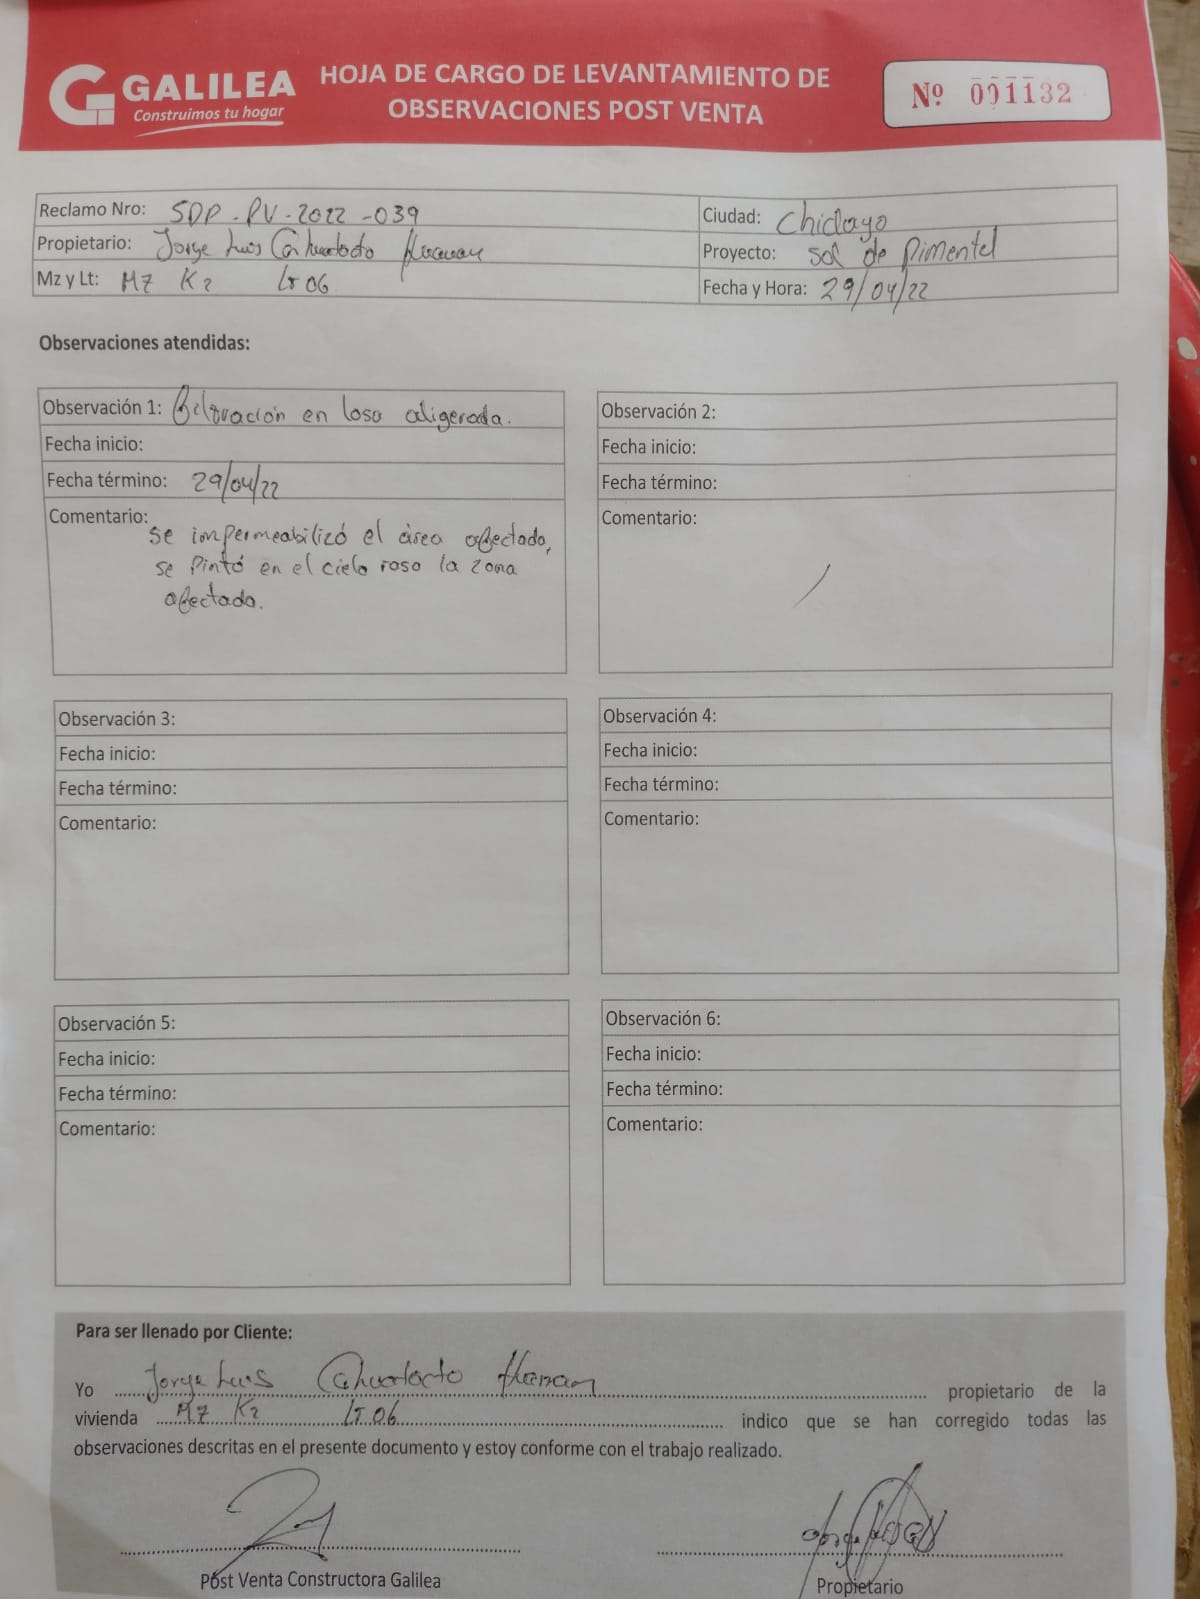 GALILEA
Construimos tu hogar
HOJA DE CARGO DE LEVANTAMIENTO DE
OBSERVACIONES POST VENTA
Nº 001132
Reclamo Nro: SDP-PV-2022-039
Ciudad: Chiclayo
Propietario: Jorge Luis
Proyecto: Sol de Pimentel
Mz y Lt: MZ K2 LT 06
Fecha y Hora: 29/04/22
Observaciones atendidas:
Observación 1: Filtración en losa aligerada.
Fecha inicio:
Fecha término: 29/04/22
Comentario:
se impermeabilizó el área afectada,
se Pintó en el cielo raso la zona
afectada.
Observación 2:
Fecha inicio:
Fecha término:
Comentario:
Observación 3:
Fecha inicio:
Fecha término:
Comentario:
Observación 4:
Fecha inicio:
Fecha término:
Comentario:
Observación 5:
Fecha inicio:
Fecha término:
Comentario:
Observación 6:
Fecha inicio:
Fecha término:
Comentario:
Para ser llenado por Cliente:
Yo Jorge Luis propietario de la
vivienda MZ K2 LT.06 indico que se han corregido todas las
observaciones descritas en el presente documento y estoy conforme con el trabajo realizado.
Post Venta Constructora Galilea
Propietario